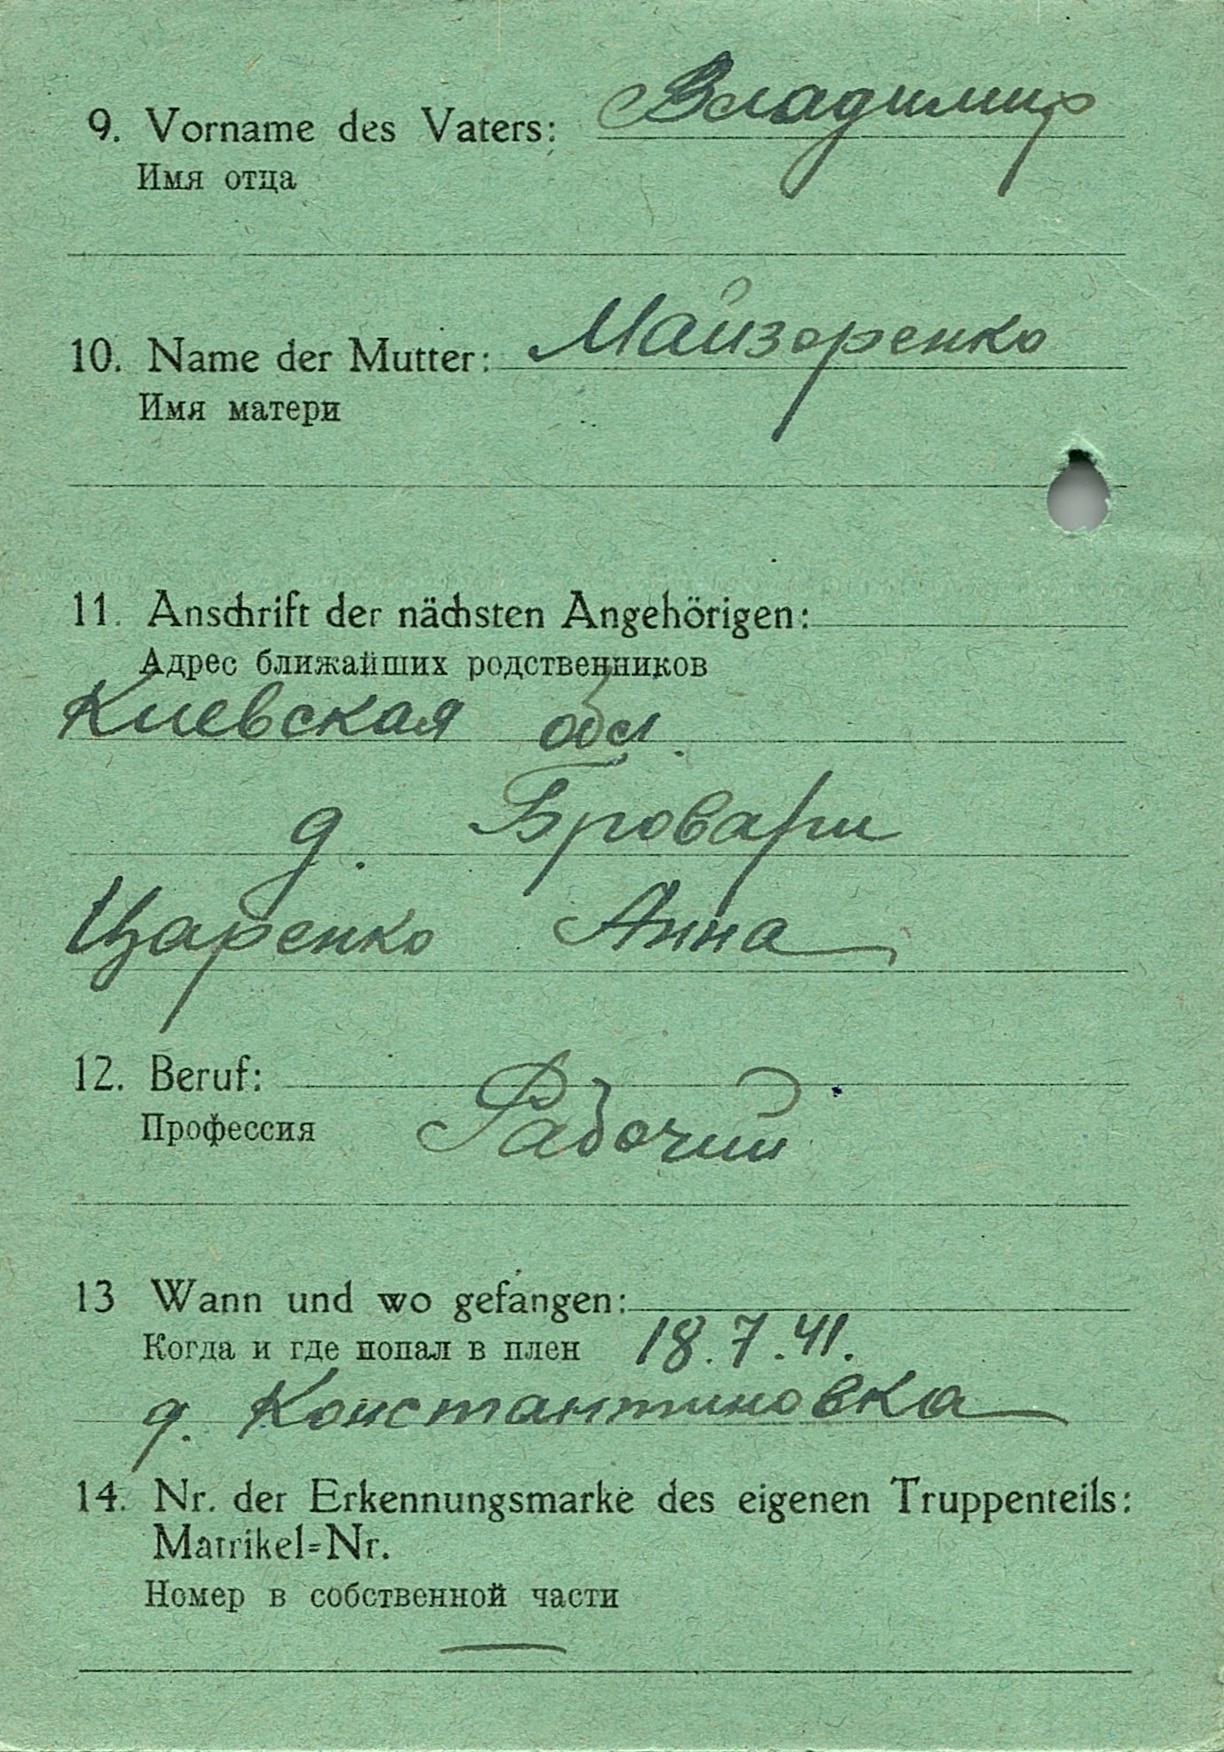 9. Vorname des Vaters: Владимир
Имя отца
10. Name der Mutter: Майзоренко
Имя матери
11. Anschrift der nächsten Angehörigen:
Адрес ближайших родственников
Киевская обл.
д. Бровари
Царенко Анна
12. Beruf:
Профессия Рабочий
13 Wann und wo gefangen:
Когда и где попал в плен 18.7.41.
д. Константиновка
14. Nr. der Erkennungsmarke des eigenen Truppenteils:
Matrikel=Nr.
Номер в собственной части
—